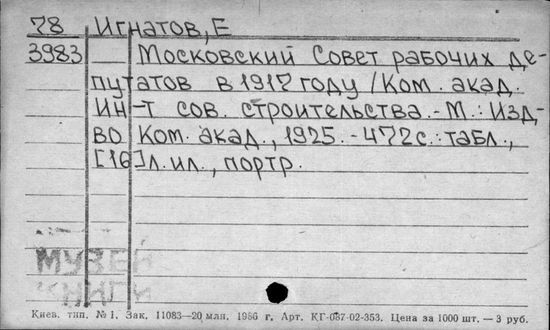 78 Игнатов, Е
3983 Московский Совет рабочих де-
путатов в 1917 году / Ком. акад.
Ин-т сов. строительства. - М.: Изд-
во Ком. акад., 1925. - 472с.: табл.,
[16]л. ил., портр.
МУЗЕЙ
КНИГИ
Киев. тип. № 1. Зак. 11083—20 млн. 1986 г. Арт. КГ-037-02-353. Цена за 1000 шт. — 3 руб.